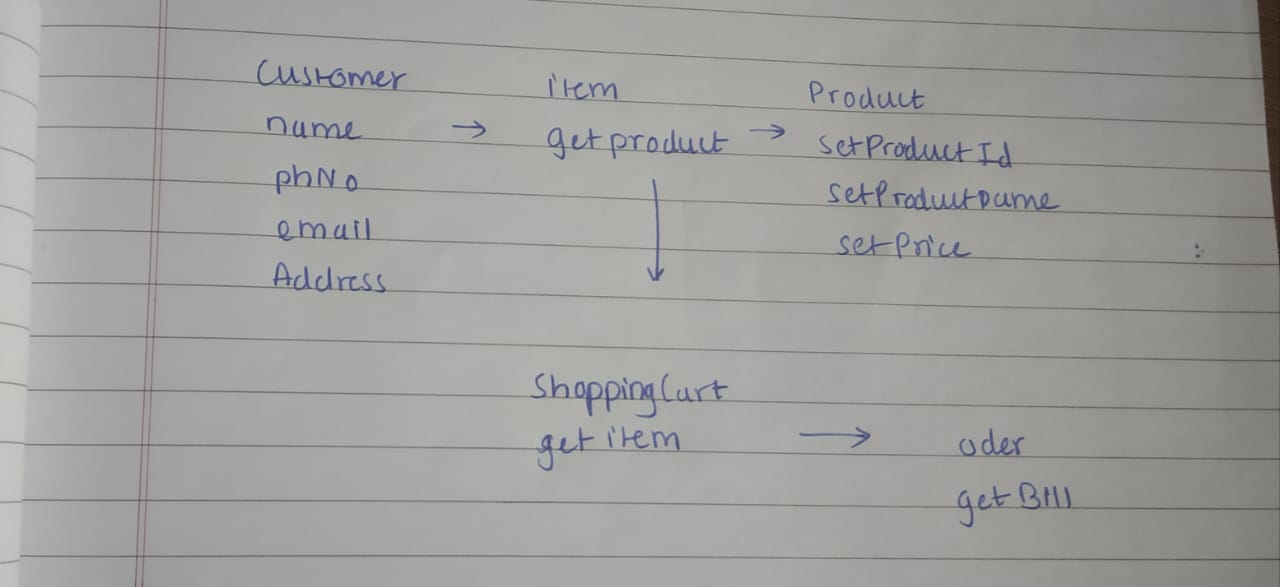 Customer
name →
phNo
email
Address
item
getproduct →
↓
Product
setProductId
setProductname
setPrice
ShoppingCart
getitem →
oder
getBill